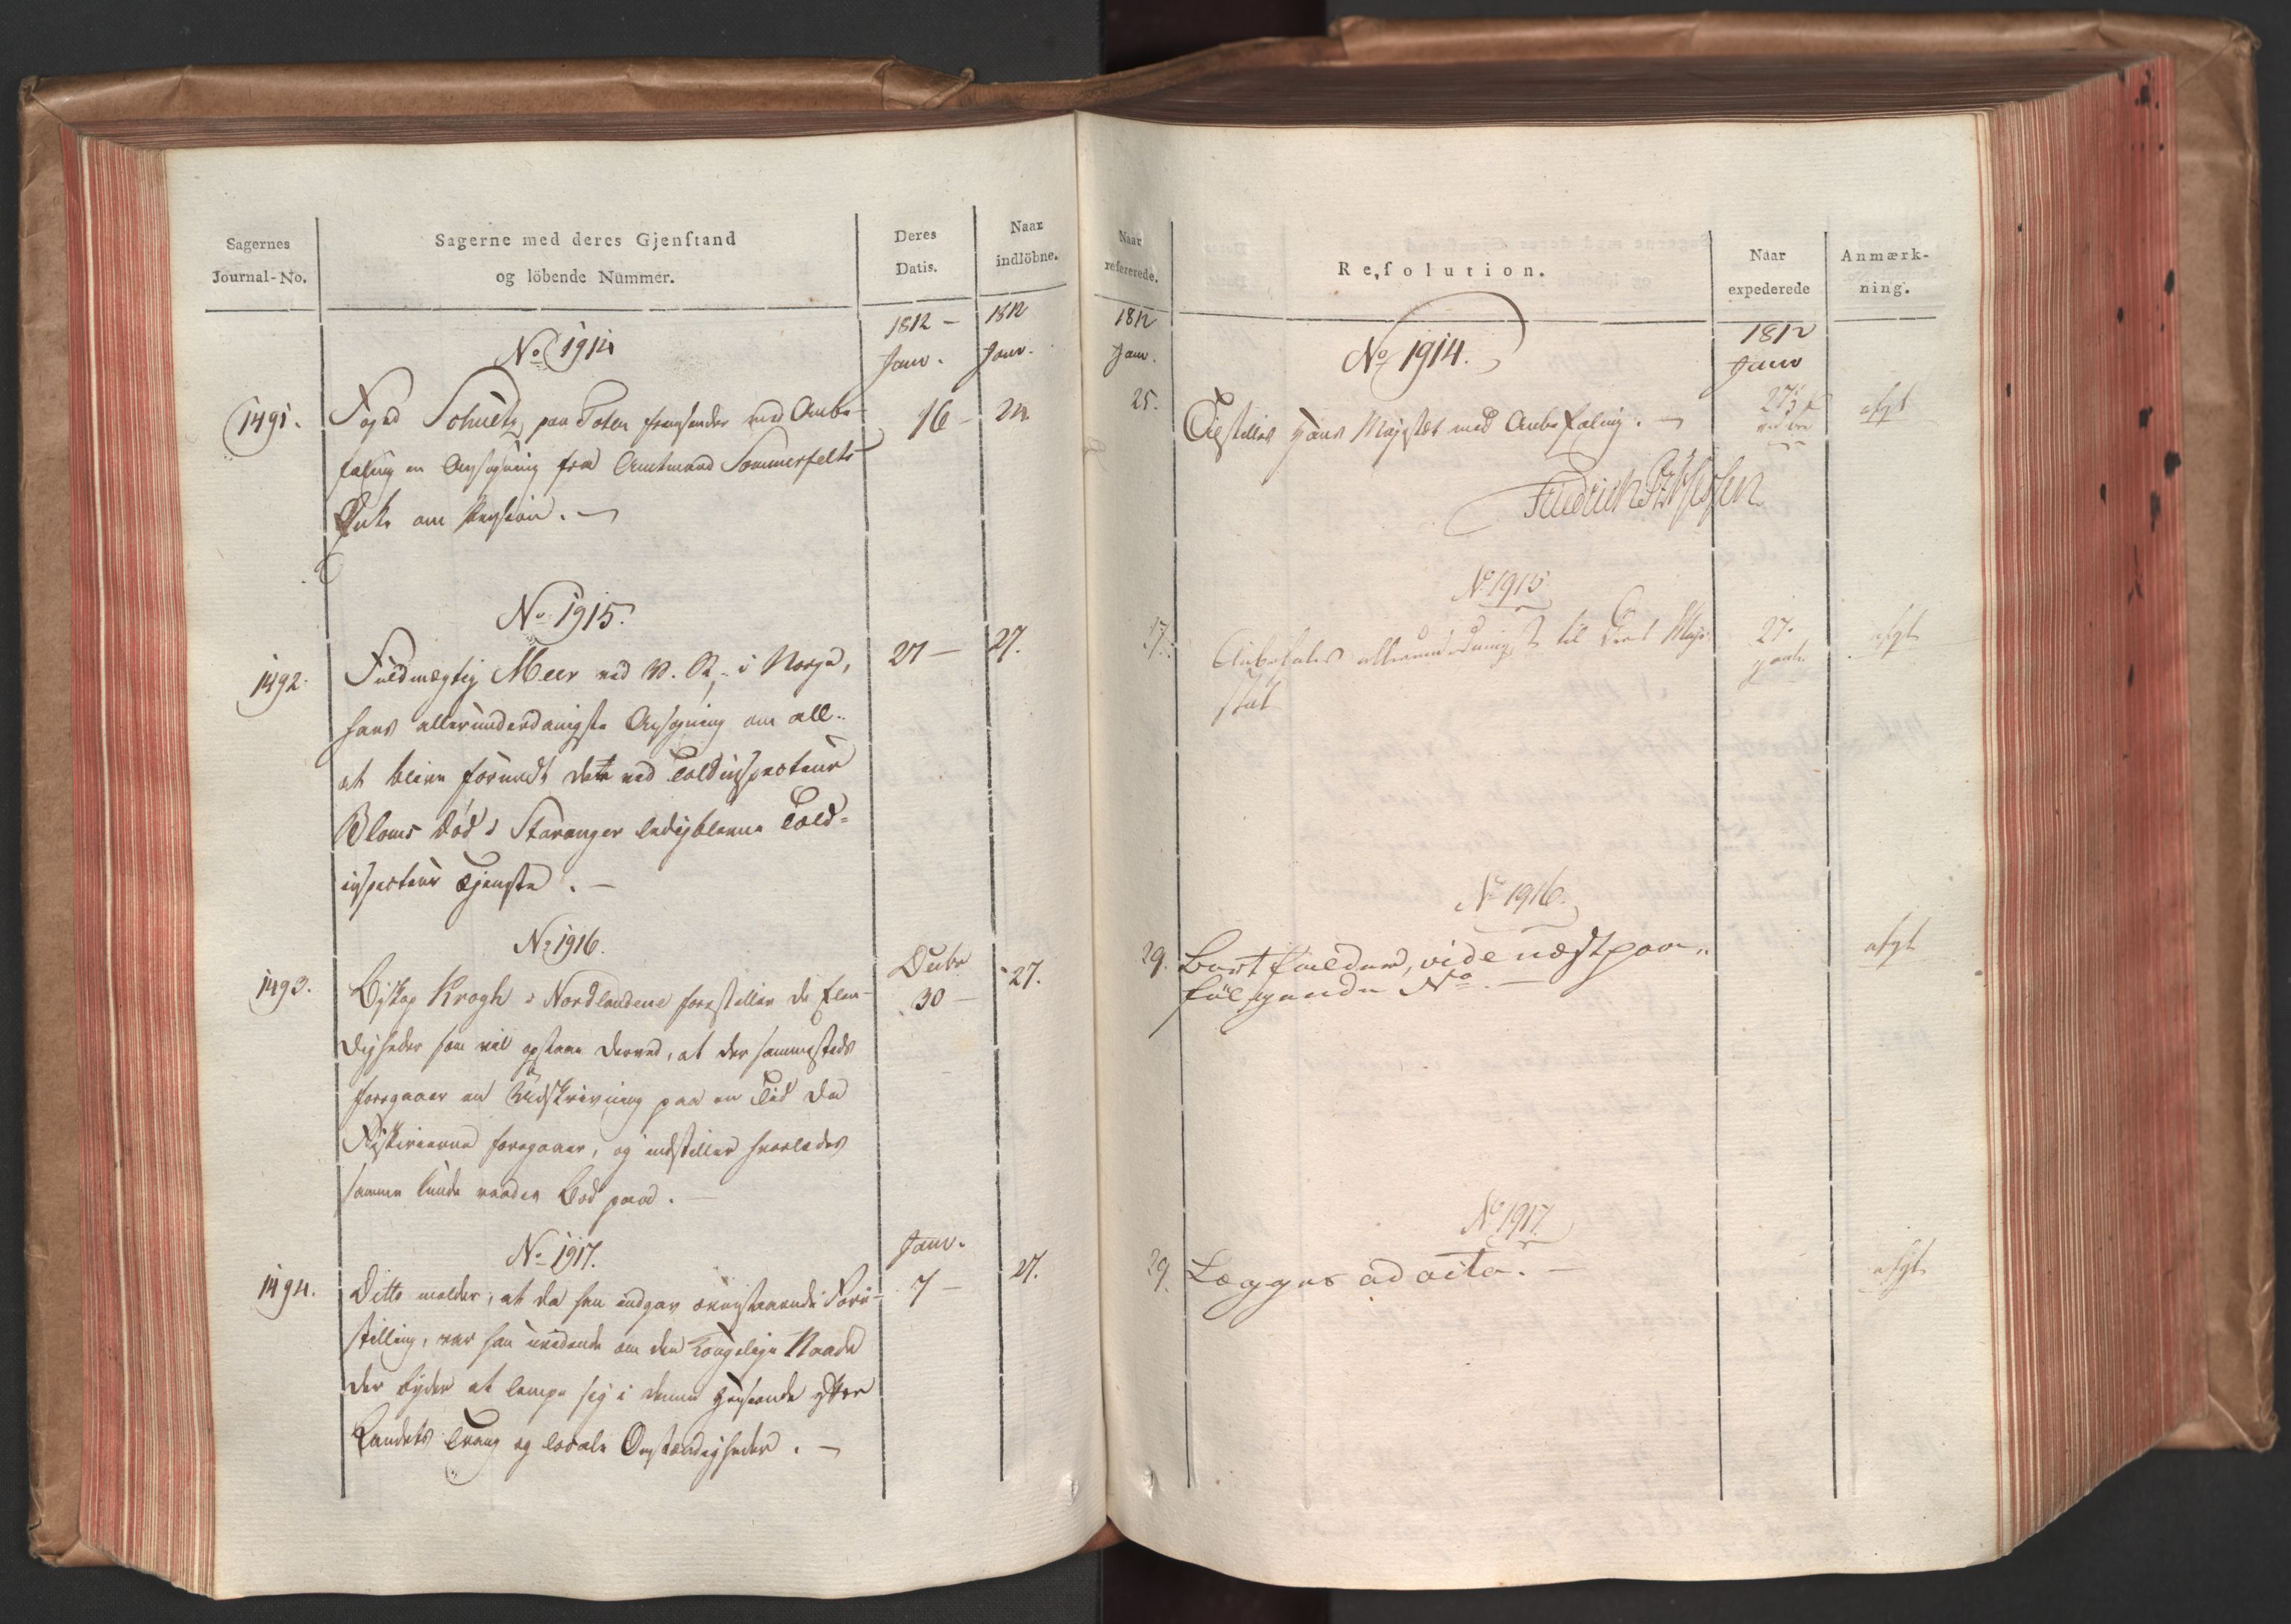 Sagernes
Journal-No.
Sagerne med deres Gjenstand
og löbende Nummer.
Deres
Datis.
Naar
indlöbne.
1812 -
Janr.
1812
Janr.
No 1914
1491.
Foged Schuetz paa Toten fremsender med Anbe-
faling en Ansøgning fra Amtmand Sommerfelts
Enke om Pension. -
16 -
24
No 1915.
1492.
Fuldmægtig Meer ved V. R. i Norge,
hans allerunderdanigste Ansøgning om all.
at blive forundt det ved Toldinspecteur
Bloms Død i Stavanger ledigblevne Told-
inspecteur Tjeneste. -
27 -
27.
No 1916.
1493.
Biskop Krogh i Nordlandene forestiller de Elen-
digheder som vil opstaae derved, at der sammesteds
foregaaer en Udskrivning paa en Tid da
Fiskerierne foregaaer, og indstiller hvorledes
samme kunde raades Bod paa. -
Decbr
30 -
27.
No 1917.
1494.
Ditto melder, at da han indgav ovenstaaende Fore-
stilling, var han uvidende om den Kongelige Naade
der byder at lempe sig i denne Henseende efter
Landets Trang og locale Omstændigheder. -
Janr.
7 -
27.
Naar
refererede.
Resolution.
Naar
expederede
Anmærk-
ning.
1812
Janr.
1812
Janr
No 1914.
25.
Tilstilles Hans Majestæt med Anbefaling. -
27
afgt
Friedrich Pz v Hessen
No 1915
27.
Anbefales allerunderdanigst til Deres Maje-
stæt
27.
afgt
No 1916.
29.
Bortfalder, vide næstpaa-
følgende No. -
afgt
No 1917.
29.
Lægges ad acta. -
afgt